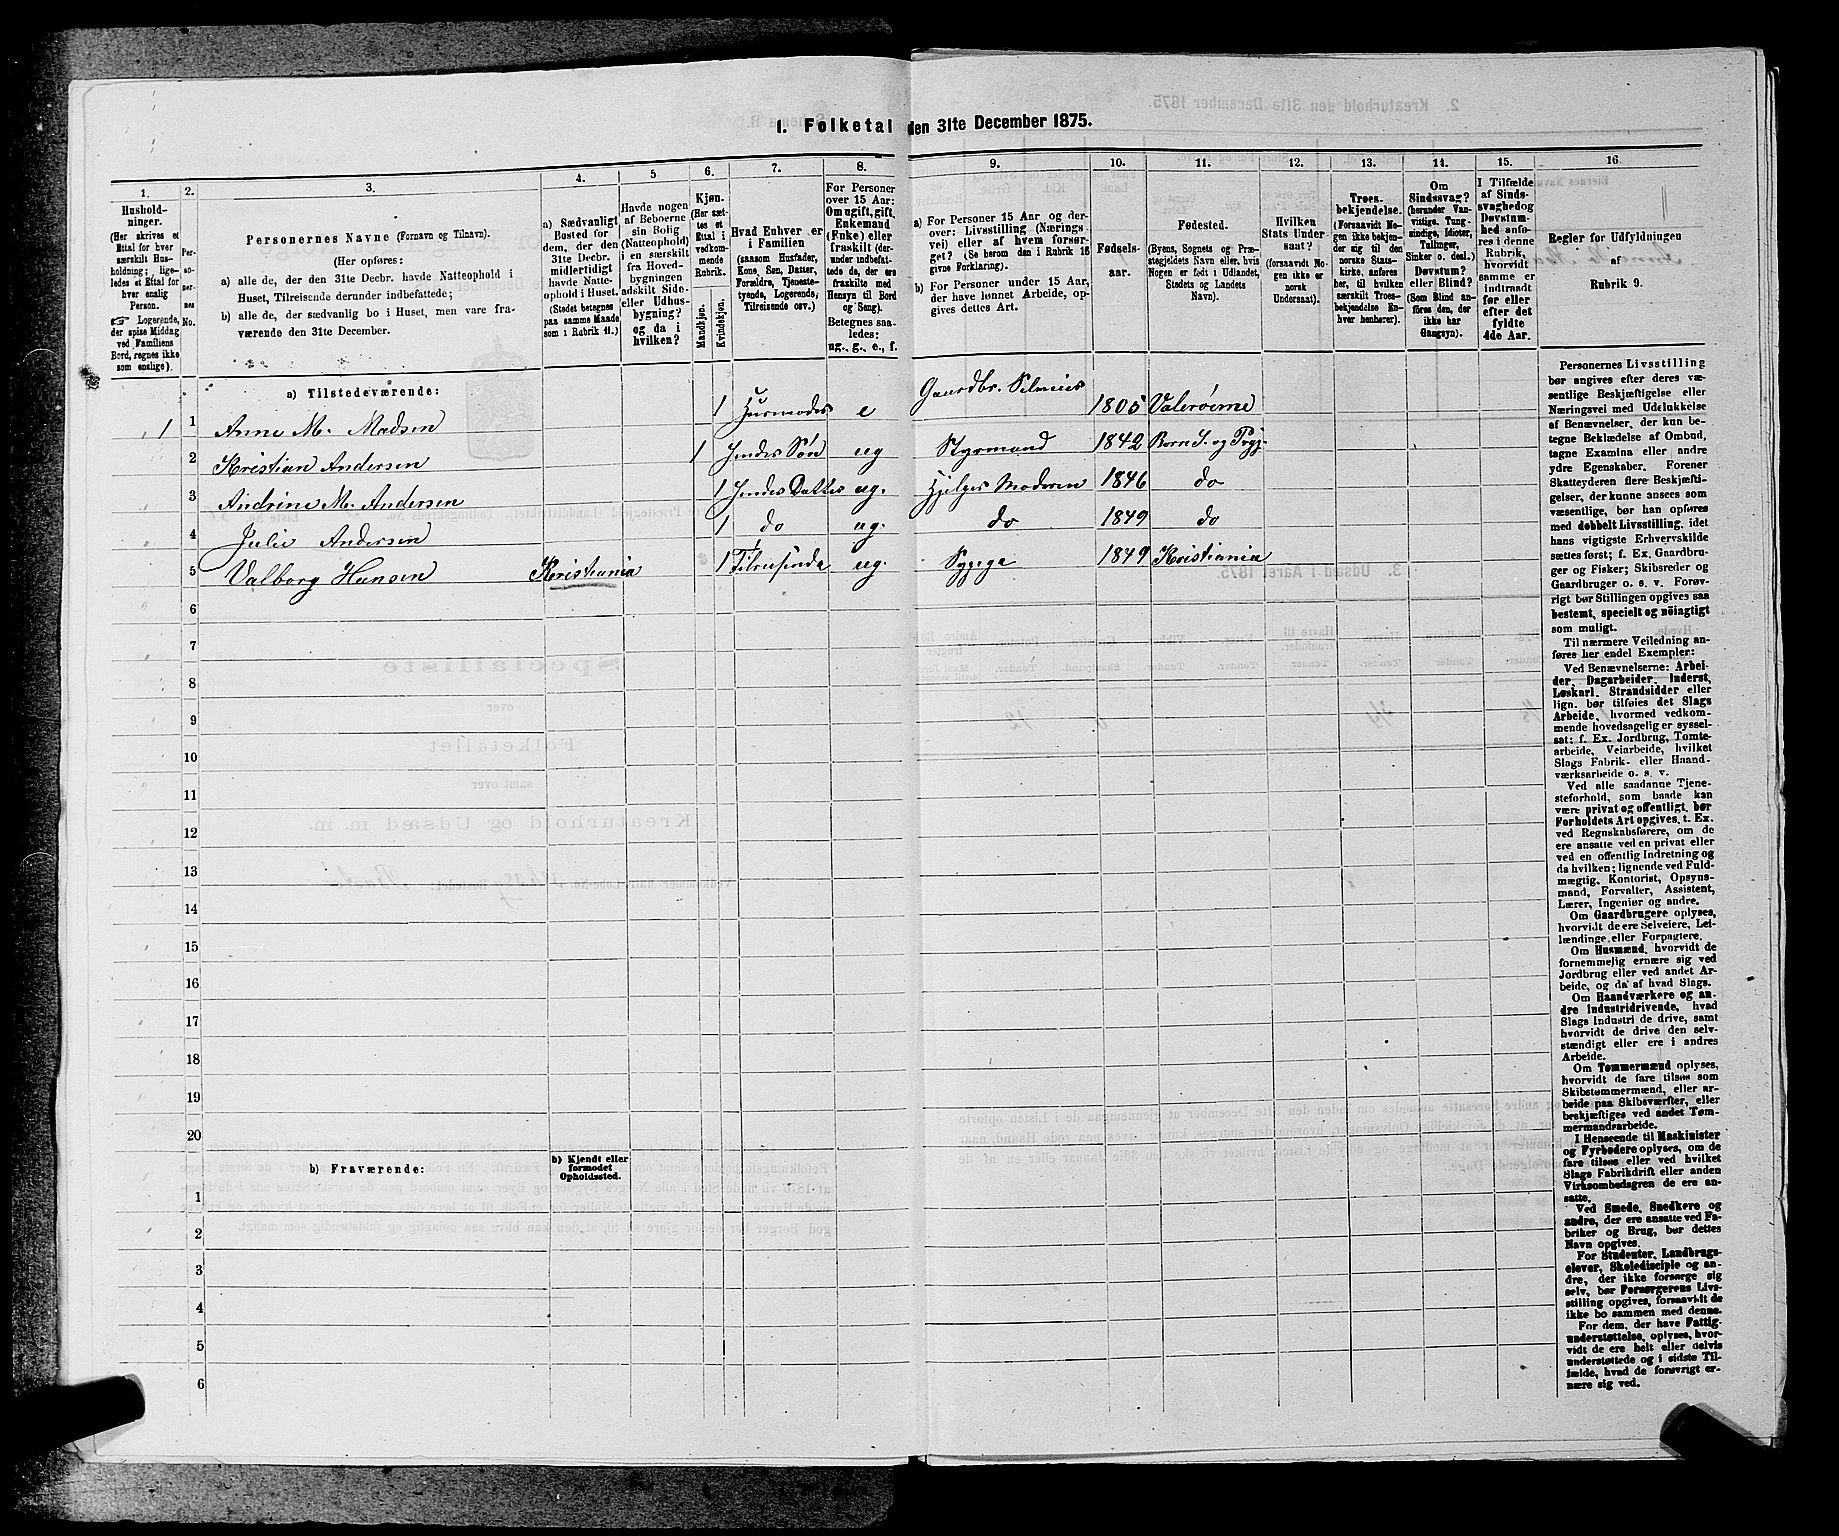 1. Folketal den 31te December 1875.
1. 2. 3. 4. 5 6. 7. 8. 9. 10. 11. 12. 13. 14. 15. 16.
Hushold-
ninger.
(Her skrives et
Ettal for hver
særskilt Hus-
holdning; lige-
ledes et Ettal for
hver enslig
Person.
☞ Logerende,
der spise Middag
ved Familiens
Bord, regnes ikke
som enslige).
Per-
so-
ner-
nes
No.
Personernes Navne (Fornavn og Tilnavn).
(Her opføres:
a) alle de, der den 31te Decbr. havde Natteophold i
Huset, Tilreisende derunder indbefattede;
b) alle de, der sædvanlig bo i Huset, men vare fra-
værende den 31te December.
a) Sædvanligt
Bosted for
dem, der den
31te Decbr.
midlertidigt
havde Natte-
ophold i Huset.
(Stedet betegnes
paa samme Maade
som i Rubrik 11.)
Havde nogen
af Beboerne
sin Bolig
(Natteophold)
i en særskilt
fra Hoved-
bygningen
adskilt Side-
eller Udhus-
bygning?
og da i
hvilken?
Kjøn.
(Her sæt-
tes et
Ettal i
vedkom-
mende
Rubrik.
Mandkjøn.
Kvindekjøn.
Hvad Enhver er
i Familien
(saasom Husfader,
Kone, Søn, Datter,
Forældre, Tjeneste-
tyende, Logerende,
Tilreisende osv.)
For Personer
over 15 Aar:
Om ugift, gift,
Enkemand
(Enke) eller
fraskilt (der-
under indbefat-
tede de, der ere
fraskilte med
Hensyn til Bord
og Seng).
Betegnes saa-
ledes:
ug., g., e., f.
a) For Personer 15 Aar og der-
over: Livsstilling (Nærings-
vei) eller af hvem forsør-
get? (Se herom den i Rubrik 16
givne Forklaring).
b) For Personer under 15 Aar,
der have lønnet Arbeide, op-
gives dettes Art.
Fødsels-
aar.
Fødested.
(Byens, Sognets og Præ-
stegjeldets Navn eller, hvis
Nogen er født i Udlandet,
Stedets og Landets
Navn).
Hvilken
Stats Under-
saat?
(forsaavidt No-
gen ikke er
norsk
Undersaat).
Troes-
bekjendelse.
(Forsaavidt No-
gen ikke bekjen-
der sig til den
norske Stats-
kirke, anføres
her, til hvilken
særskilt Troes-
bekjendelse En-
hver henhører).
Om
Sindssvag?
(herunder Van-
vittige, Tung-
sindige, Idioter,
Tullinger,
Sinker o. desl.)
Døvstum?
eller Blind?
(Som Blind an-
føres den, der
ikke har
Gangsyn).
I Tilfælde
af Sinds-
svaghed og
Døvstum-
hed anfø-
res i denne
Rubrik,
hvorvidt
samme er
indtraadt
før eller
efter det
fyldte
4de Aar.
Regler for Udfyldningen
af
Rubrik 9.
a) Tilstedeværende:
1 1 Anne M. Madsen 1 Husmoder e Gaardbr. Selveier 1805 Valerøerne
2 Kristian Andersen 1 Hendes Søn ug Styrmand 1842 Borre S. og Prgj.
3 Andrine M. Andersen 1 Hendes Datter ug. Hjelper Moderen 1846 do
4 Julie Andersen 1 do ug. do 1849 do
5 Valborg Hansen Kristiania 1 Tilreisende ug. Sypige 1849 Kristiania
6
7
8
9
10
11
12
13
14
15
16
17
18
19
20
b) Fraværende:
b) Kjendt eller
formodet
Opholdssted.
1
2
3
4
5
6
Personernes Livsstilling
bør angives efter deres væ-
sentlige Beskjæftigelse eller
Næringsvei med Udelukkelse
af Benævnelser, der kun be-
tegne Beklædelse af Ombud,
tagne Examina eller andre
ydre Egenskaber. Forener
Skatteyderen flere Beskjæfti-
gelser, der kunne ansees som
væsentlige, bør han opføres
med dobbelt Livsstilling, idet
hans vigtigste Erhvervskilde
sættes først; f. Ex. Gaardbru-
ger og Fisker; Skibsreder og
Gaardbruger o. s. v. Forøv-
rigt bør Stillingen opgives saa
bestemt, specielt og nöiagtigt
som muligt.
Til nærmere Veiledning an-
føres her endel Exempler:
Ved Benævnelserne: Arbei-
der, Dagarbeider, Inderst,
Løskarl, Strandsidder eller
lign. bør tilføies det Slags
Arbeide, hvormed vedkom-
mende hovedsagelig er syssel-
sat; f. Ex. Jordbrug, Tømte-
arbeide, Veiarbeide, hvilket
Slags Fabrik- eller Haand-
værksarbeide o. s. v.
Ved alle saadanne Tjene-
steforhold, som baade kan
være privat og offentligt, bør
Forholdets Art opgives, t. Ex.
ved Regnskabsførere, om de
ere ansatte ved en privat eller
ved en offentlig Indretning og
da hvilken; lignende ved Fuld-
mægtig, Kontorist, Opsyns-
mand, Forvalter, Assistent,
Lærer, Ingeniør og andre.
Om Gaardbrugere oplyses,
hvorvidt de ere Selveiere, Lei-
lændinge eller Forpagtere.
Om Husmænd, hvorvidt de
fornemmelig ernære sig ved
Jordbrug eller ved andet Ar-
beide, og da af hvad Slags.
Om Haandværkere og an-
dre Industridrivende, hvad
Slags Industri de drive, samt
hvorvidt de drive den selv-
stændigt eller ere i andres
Arbeide.
Om Tømmermænd oplyses,
hvorvidt de fare tilsøs som
Skibstømmermænd, eller ar-
beide paa Skibsværfter, eller
beskjæftiges ved andet Tøm-
mermandsarbeide.
I Henseende til Maskinister
og Fyrbødere oplyses, om de
fare tilsøs eller ved hvilket
Slags Fabrikdrift eller anden
Virksomhedsgren de ere an-
satte.
Ved Smede, Snedkere og
andre, der ere ansatte ved Fa-
briker og Brug, bør dettes
Navn opgives.
For Studenter, Landbrugs-
elever, Skoledisciple og an-
dre, der ikke forsørge sig
selv, bør Forsørgerens Livs-
stilling opgives, forsaavidt de
ikke bo sammen med denne.
For dem, der have Fattig-
understøttelse, oplyses, hvor-
vidt de ere helt eller delvis
understøttede og i sidste Til-
fælde, hvad de forøvrigt er-
nære sig ved.